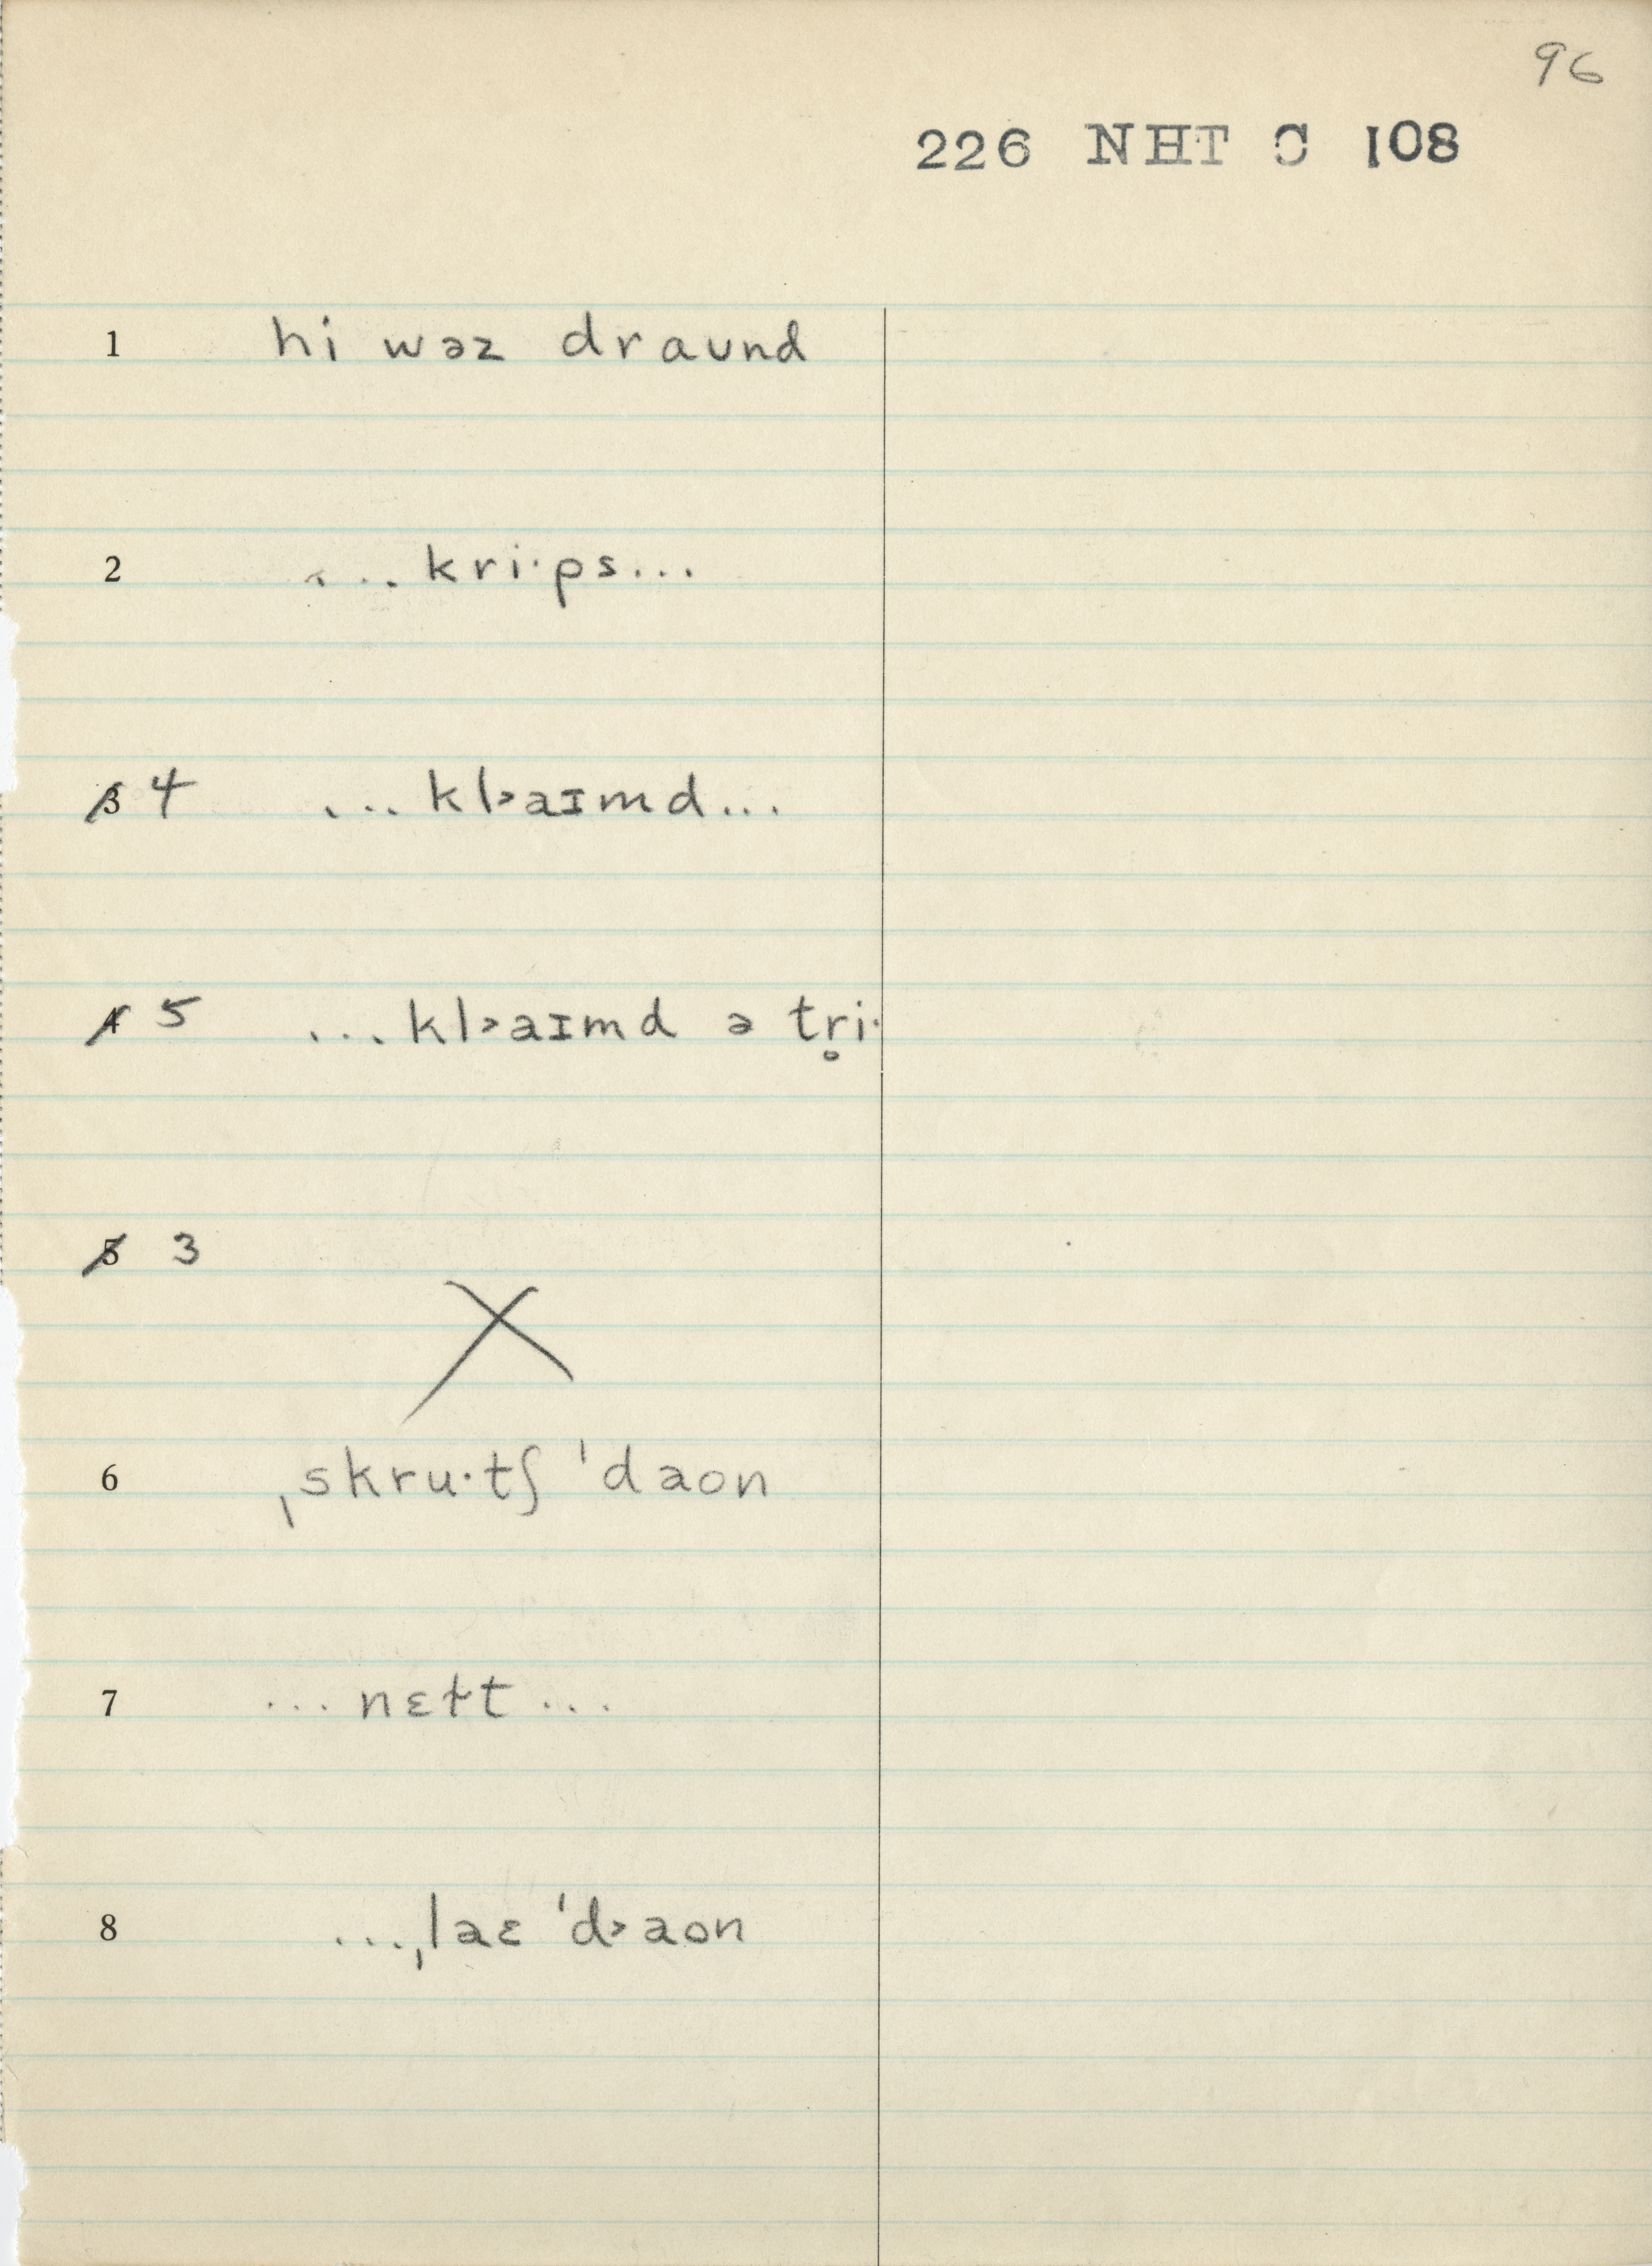 96
226 NHT C 108
1 hi wəz draʊnd
2 ... kri·ps...
3 4 ... kl˃aɪmd...
4 5 ... kl˃aɪmd ə tr̥i·
5 3
X
6 ˌskru·tʃ ˈdaon
7 ... nɛɫt ...
8 ...ˌlaɛ ˈd˃aon